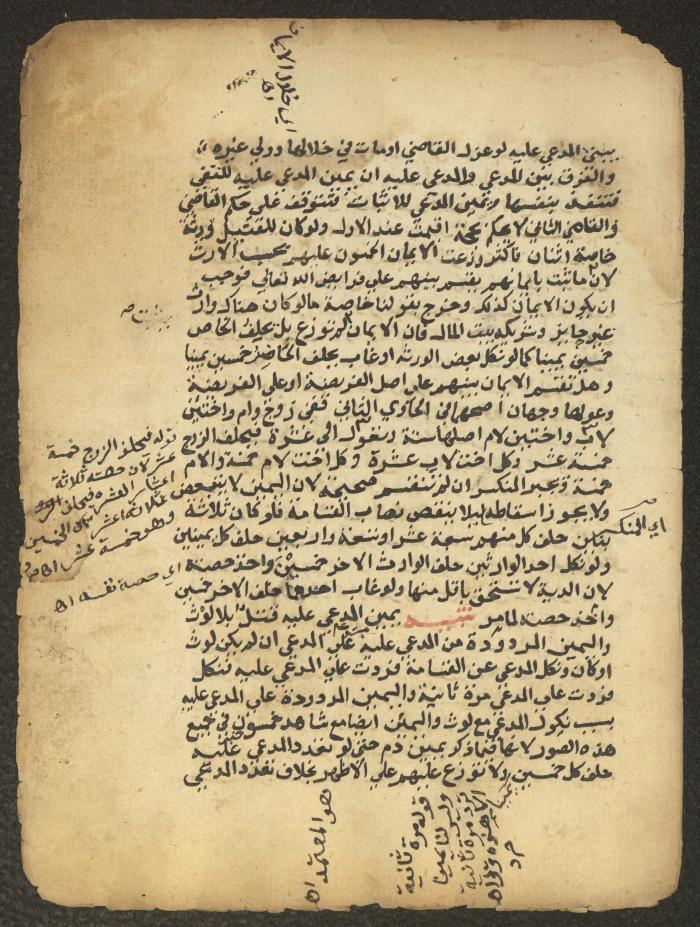 اي خلال الايمان
اه
يبني المدعي عليه لو عزل القاضي او مات في خلالها وولي غيره
والفرق بين المدعي والمدعي عليه ان يمين المدعي عليه للنفي
فتنفذ بنفسها ويمين المدعي للاثبات فتتوقف علي حكم القاضي
والقاضي الثاني لا يحكم بحجة اقيمت عند الاول ولو كان للقتيل ورثة
خاصة اثنان فاكثر وزعت الايمان الخمسون عليهم بحسب الارث
لان ما يثبت بايمانهم يقسم بينهم علي فرايض الله تعالي فوجب
ان يكون الايمان كذلك وخرج بقولنا خاصة ما لو كان هناك وارث
غير حايز وشريكه بيت المال فان الايمان لا توزع بل يحلف الخاص
خمسين يمينا كما لو نكل بعض الورثة او غاب يحلف الحاضر خمسين يمينا
وهل تقسم الايمان بينهم علي اصل الفريضة او علي الفريضة
وعولها وجهان اصحهما في الحاوي الثاني ففي زوج وام واختين
لاب واختين لام اصلها ستة وتعول الي عشرة فيحلف الزوج
خمسة عشر وكل اخت لاب عشرة وكل اخت لام خمسة والام
خمسة ويجبر المنكسر ان لم تنقسم صحيحة لان اليمين لا يتبعض
ولا يجوز اسقاطه ليلا ينقص نصاب القسامة فلو كان ثلاثة
بنين حلف كل منهم سبعة عشر او تسعة واربعين حلف كل يمينين
ولو نكل احد الوارثين حلف الوارث الاخر خمسين واخذ حصته
لان الدية لا تستحق باقل منها ولو غاب احدهما حلف الاخر خمسين
واخذ حصته لما مر تنبيه يمين المدعي عليه قتل بلا لوث
واليمين المردودة من المدعي عليه علي المدعي ان لم يكن لوث
او كان ونكل المدعي عن القسامة فردت علي المدعي عليه فنكل
فردت علي المدعي مرة ثانية واليمين المردودة علي المدعي عليه
بسبب نكول المدعي مع لوث واليمين ايضا مع شاهد خمسون في جميع
هذه الصور لانها فيما ذكر يمين دم حتي لو تعدد المدعي عليه
حلف كل خمسين ولا توزع عليهم علي الاظهر بخلاف تعدد المدعي
قوله فيحلف الزوج خمسة
عشر لان حصته ثلاثة
وهو خمسة عشر اه م د
اي حصة نفسه اه
اي المنكسر
هو المعتمد اه
قوله مرة ثانية
وليس لنا يمين
ترد مرة ثانية
الا هذه
م د